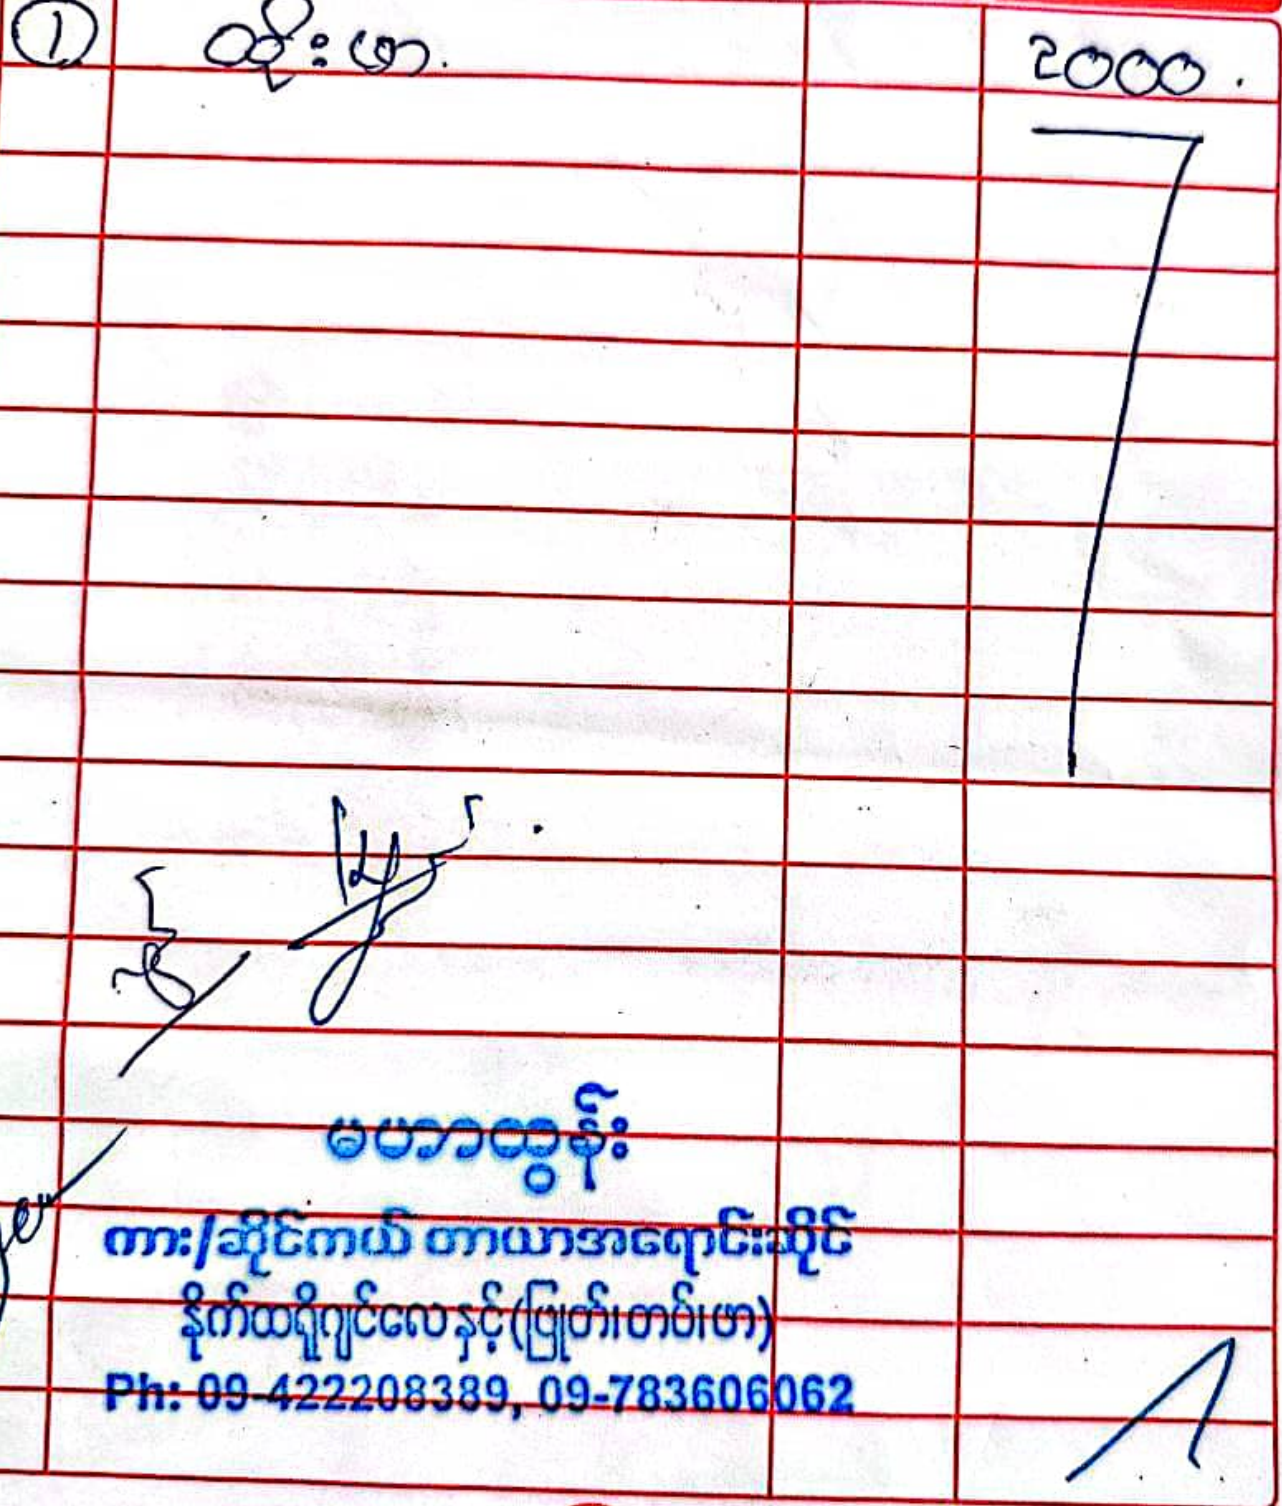 ① ထိုးဖာ. 2000.
မဟာထွန်း
ကား/ဆိုင်ကယ် တာယာအရောင်းဆိုင်
နိုက်ထရိုဂျင်လေနှင့်(ဖြုတ်၊တပ်၊ဖာ)
Ph: 09-422208389, 09-783606062